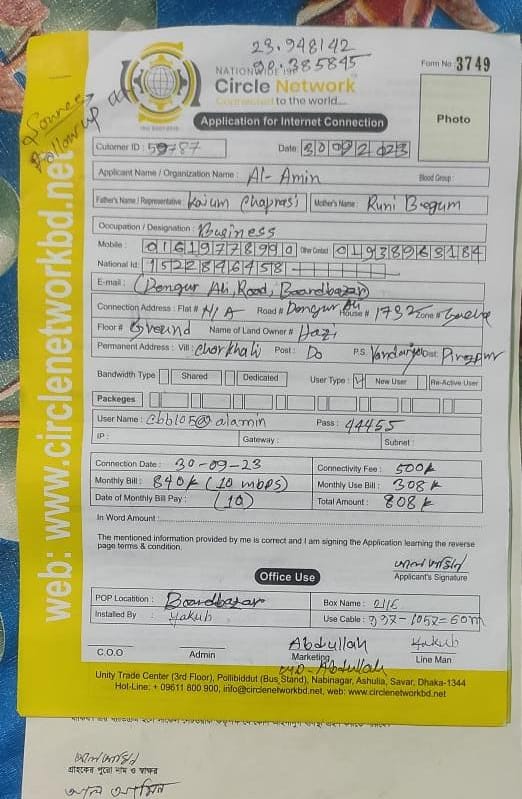 23.948142
90.385845
Form No 3749
NATIONWIDE ISP
Circle Network
Connected to the world....
ISO 9001:2015
Follow up
Application for Internet Connection
Photo
Cutomer ID : 59787
Date: 30 09 2023
Applicant Name / Organization Name : Al-Amin
Blood Group:
Father's Name / Representative: Kaium Chaprasi
Mother's Name : Runi Begum
Occupation / Designation : Business
Mobile : 01619778990
Other Contact 01938963184
National Id: 1522846458
E-mail : (Dengur Ali, Road, Boardbazar)
Connection Address : Flat # N/A Road # Dengur Ali House # 1732 Zone #
Floor # Ground Name of Land Owner # Hazi
Permanent Address : Vill : Chorkhali Post : Do P.S. Dist: Pirojpur
Bandwidth Type Shared Dedicated User Type : New User Re-Active User
Packeges
User Name : cbb105@alamin Pass : 44455
IP : Gateway : Subnet :
Connection Date : 30-09-23 Connectivity Fee : 500k
Monthly Bill : 840k (10 mbps) Monthly Use Bill : 308k
Date of Monthly Bill Pay : (10) Total Amount : 808k
In Word Amount :
The mentioned information provided by me is correct and I am signing the Application learning the reverse
page terms & condition.
আল আমিন
Applicant's Signature
Office Use
POP Locatition : Boardbazar Box Name :
Installed By : Yakub Use Cable : =60m
Abdullah Yakub
C.O.O Admin Marketing Line Man
Abdullah
Unity Trade Center (3rd Floor), Pollibiddut (Bus Stand), Nabinagar, Ashulia, Savar, Dhaka-1344
Hot-Line: + 09611 800 900, info@circlenetworkbd.net, web: www.circlenetworkbd.net
web: www.circlenetworkbd.net
আল আমিন
গ্রাহকের পুরো নাম ও স্বাক্ষর
আল আমিন